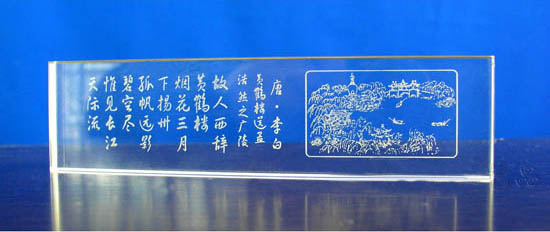 唐·李白
黄鹤楼送孟
浩然之广陵
故人西辞
黄鹤楼
烟花三月
下扬州
孤帆远影
碧空尽
惟见长江
天际流